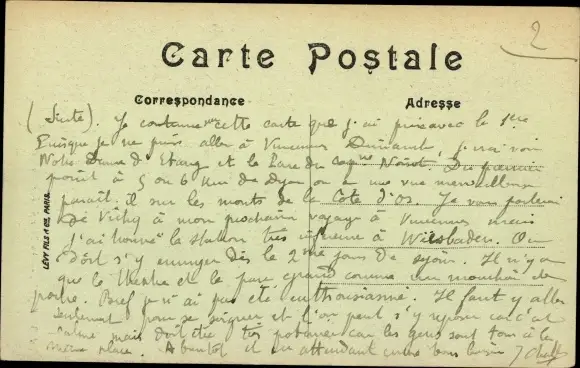 2
Carte Postale
Correspondance
Adresse
(Suite). Je continue sur cette carte que j'ai prise avec la 1ère
Puisque je ne puis aller à Vincennes Dimanche, j'irai voir
Notre Dame d'Etang et le Parc du capne Noisot. Du premier
point à 5 ou 6 Km de Dijon on a une vue merveilleuse
paraît-il sur les monts de la Côte d'Or. Je vous parlerai
de Vichy à mon prochain voyage à Vincennes mais
j'ai trouvé la station très inférieure à Wiesbaden. On
doit s'y ennuyer dès le 2ème jour de séjour. Il n'y a
que le théâtre et le parc grand comme un mouchoir de
poche. Bref je n'ai pas été enthousiasmé. Il faut y aller
seulement pour se soigner et l'on peut s'y reposer car c'est
calme mais doit être très car les gens sont tous à la
même place. A bientôt et en attendant encore bons baisers
LÉVY FILS & Cie, PARIS